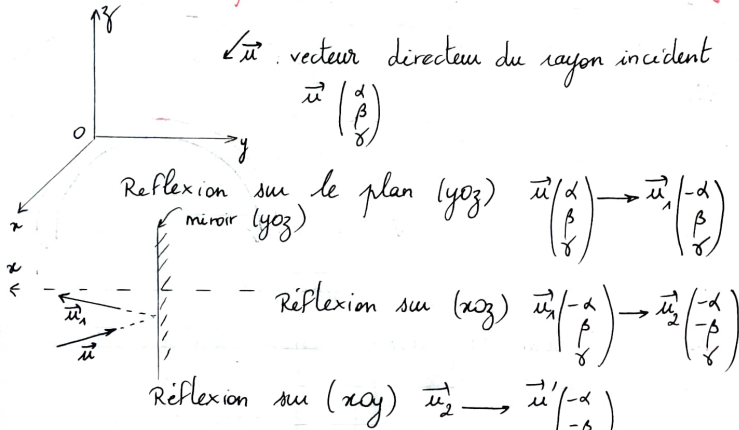 z
u⃗ . vecteur directeur du rayon incident
u⃗ (α β γ)
O
y
x
Reflexion sur le plan (yoz) u⃗ (α β γ) → u⃗₁ (-α β γ)
miroir (yoz)
x
u⃗₁
u⃗
Réflexion sur (xoz) u⃗₁ (-α β γ) → u⃗₂ (-α -β γ)
Réflexion sur (xoy) u⃗₂ → u⃗' (-α -β